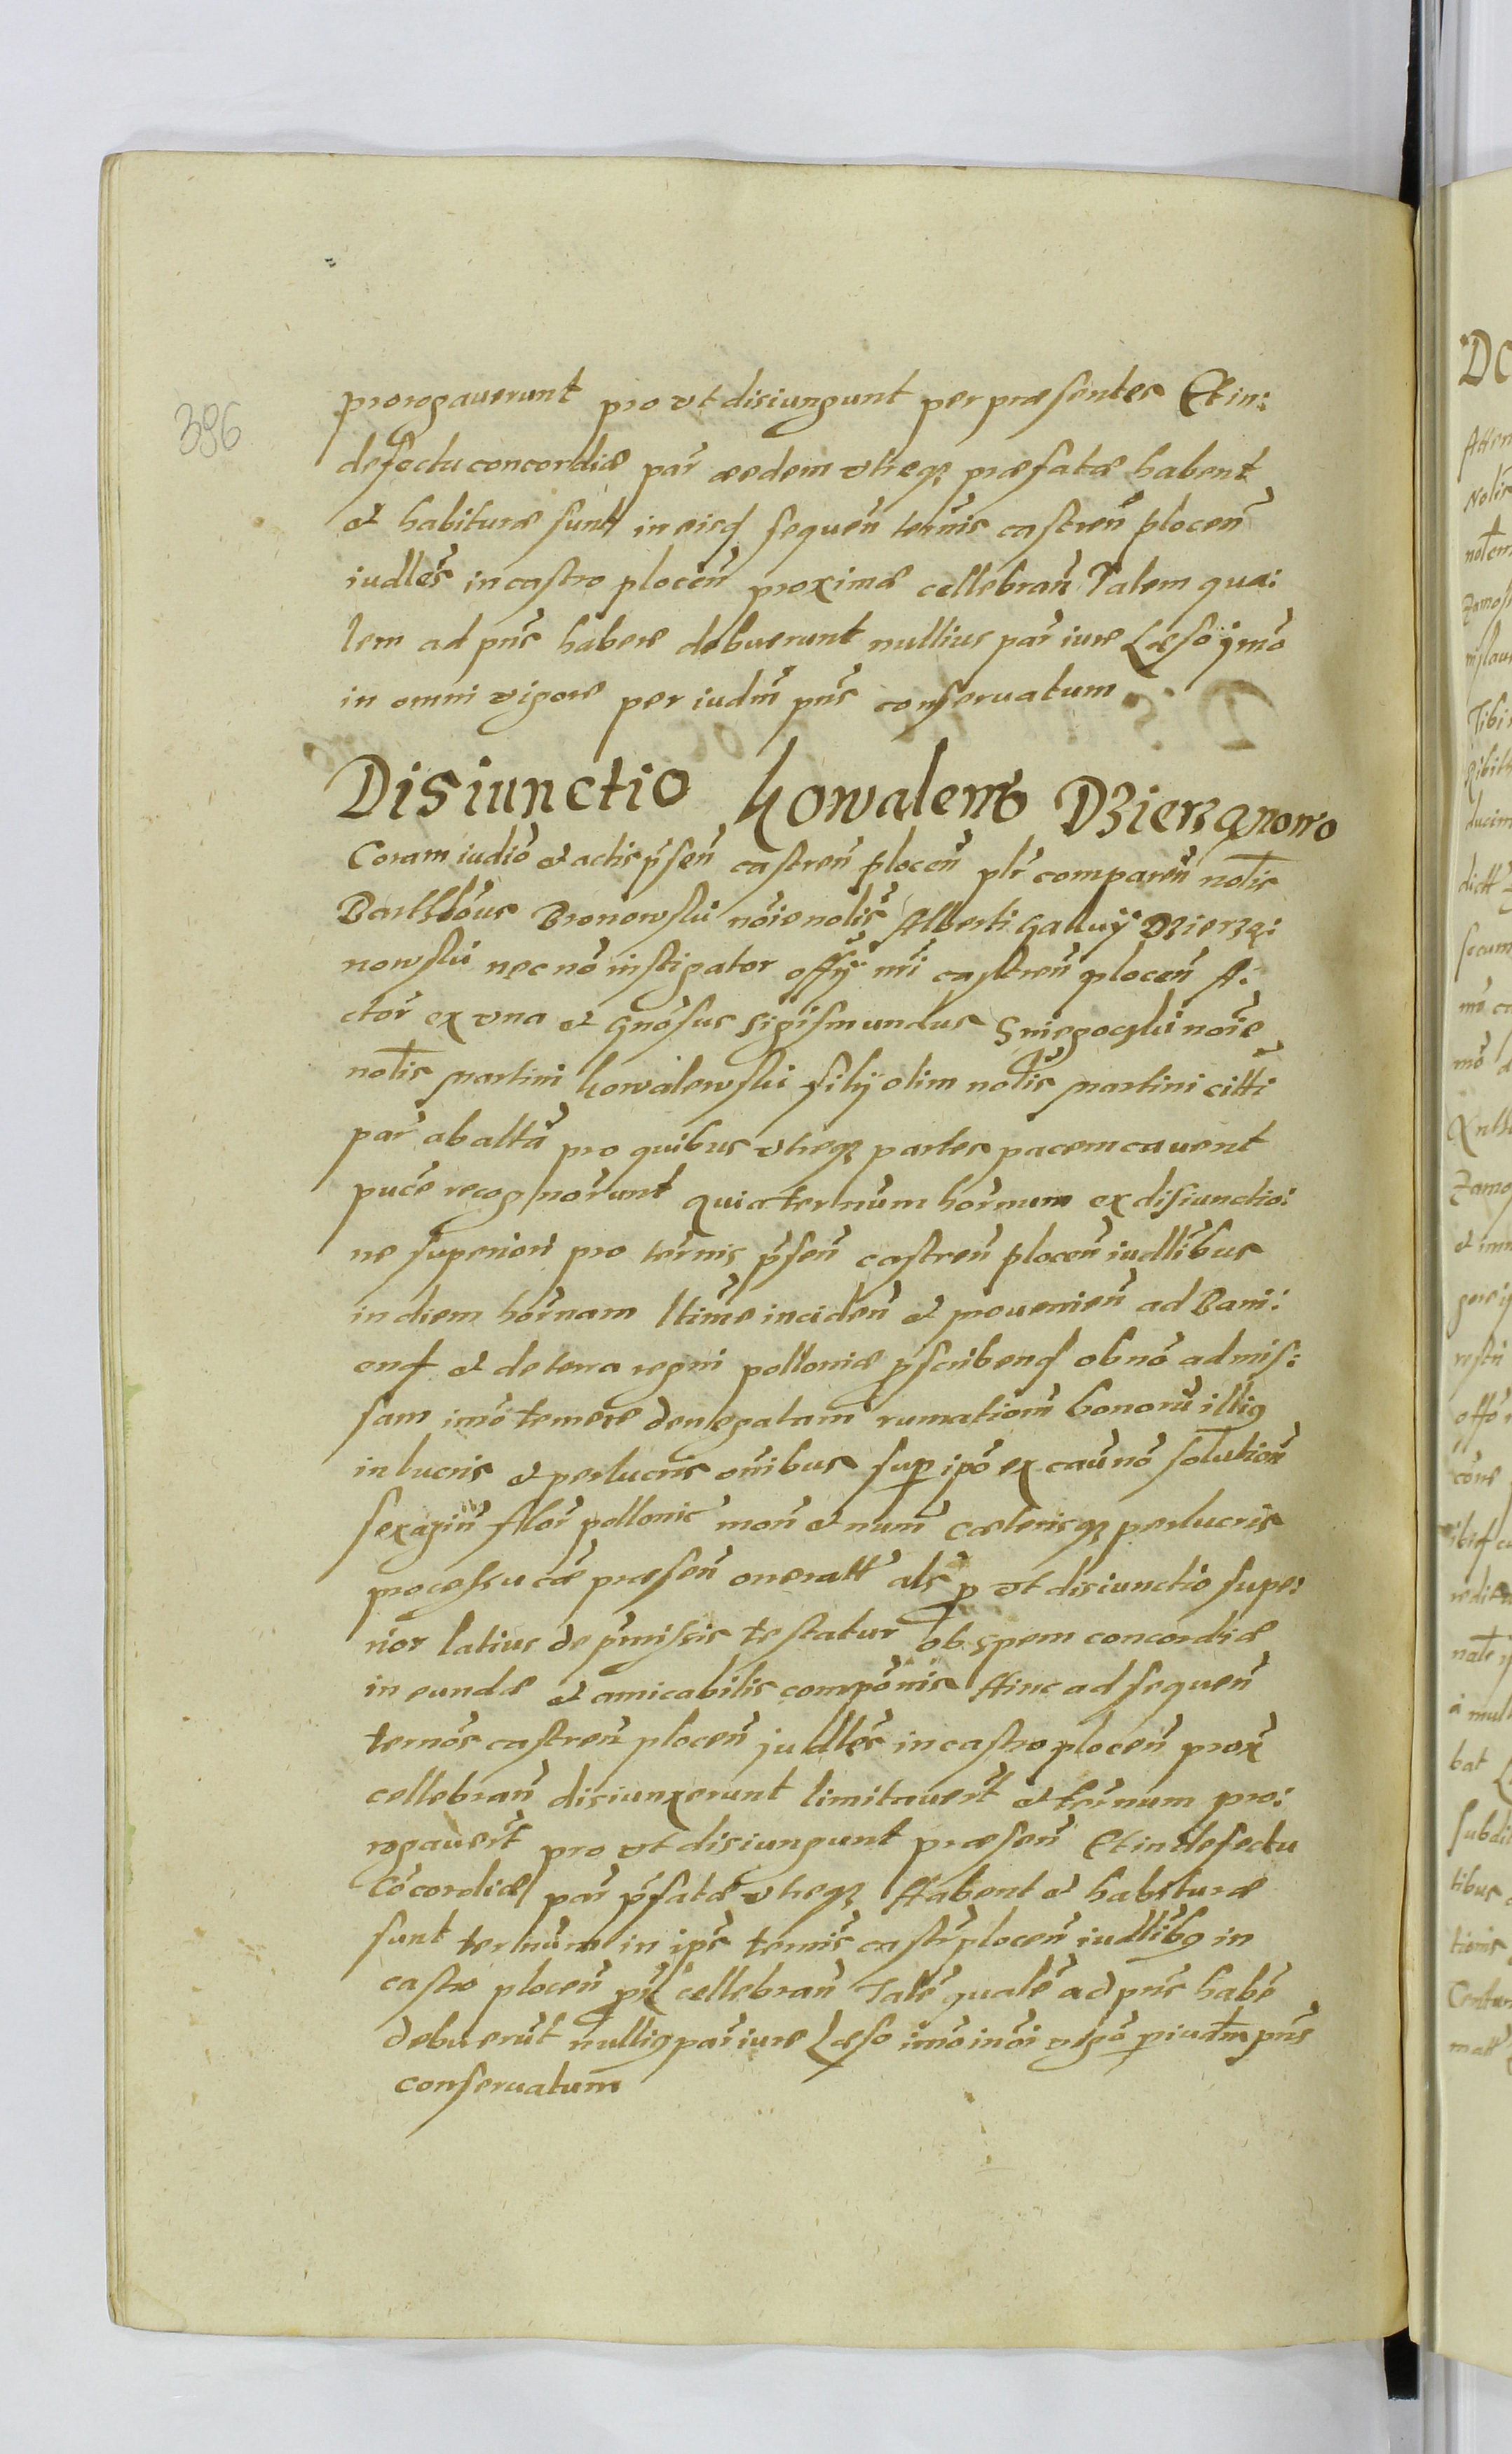 396
prorogauerunt pro vt disiungunt per præsentes Et in:
defectu concordiæ par̃ æedem vtræq3 præfatæ habent
et habituræ sunt in eisd sequeñ terñis castreñ ploceñ
iudlẽs in castro ploceñ proximæ cellebrañ Talem qua:
lem ad pñs habere debuerunt nullius par̃ iure Læso ymo
in omni vigore per iudm̃ pñs conseruatum
Disiunctio Kowalewo Dzierzanowo
Coram iudio et actis p̃señ castreñ ploceñ plr̃ compareñ nolis
Barthlõus Bronowski nõie nolis Alberti Galluÿ Dzierzą:
nowski nec nõ instigator offÿ nri castreñ ploceñ A:
ctor ex vna et Gnõsus Sigismundus Sniegoczki nõie
nolis Martini Kowalewski filij olim nolis Martini citti
par̃ ab altã pro quibus vtræq3 partes pacem cauent
puc̃e recognorunt quia termũm hor̃num ex disiunctio:
ne superiori pro ter̃nis p̃señ castreñ ploceñ iudlibus
in diem hor̃nam ltim̃e incideñ et proueñieñ ad Bani:
end et de terra regni polloniæ p̃scribend ob nõ admis:
sam imo temere denegatam rumationẽ bonorũ illig
in lucris et perlucris om̃ibus sup ipõ ex cau nõ solutioñ
sexagiñ flor̃ pollonic̃ moñ et num̃ cæterisq3 perlucris
processu cæ præseñ oneratt als p vt disiunctio supe:
rior latius de p̃missis testatur ob spem concordiæ
in eundæ et amicabilis compõnis Hinc ad sequeñ
ternõs castreñ ploceñ judlẽs in castro ploceñ prox̃
cellebrañ disiunxerunt limitauer̃t et ter̃num pro:
rogauer̃t pro vt disiungunt præseñ Et in defectu
Cõcordiæ par̃ p̃fatæ vtræq3 Habent et habituræ
sunt termũm in ip̃s ternis castr̃ ploceñ iudlib9 in
castro ploceñ px̃ cellebrañ Talẽ qualẽ ad pñs habẽ
debuerũt nullig par̃ iure Læso imo in õi vigõ p iudm̃ pñs
conseruatum